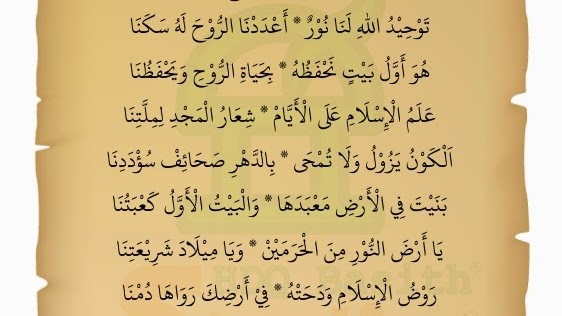 تَوْحِيْدُ اللهِ لَنَا نُوْرٌ * أَعْدَدْنَا الرُّوْحَ لَهُ سَكَنَا
هُوَ أَوَّلُ بَيْتٍ نَحْفَظُهُ * بِحَيَاةِ الرُّوْحِ وَيَحْفَظُنَا
عَلَمُ الْإِسْلَامِ عَلَى الْأَيَّامْ * شِعَارُ الْمَجْدِ لِمِلَّتِنَا
اَلْكَوْنُ يَزُوْلُ وَلَا تُمْحَى * بِالدَّهْرِ صَحَائِفُ سُؤْدَدِنَا
بَنَيْتَ فِي الْأَرْضِ مَعْبَدَهَا * وَالْبَيْتُ الْأَوَّلُ كَعْبَتُنَا
يَا أَرْضَ النُّوْرِ مِنَ الْحَرَمَيْنْ * وَيَا مِيْلَادَ شَرِيْعَتِنَا
رَوْضُ الْإِسْلَامِ وَدَحَتْهُ * فِيْ أَرْضِكَ رَوَاهَا دُمْنَا